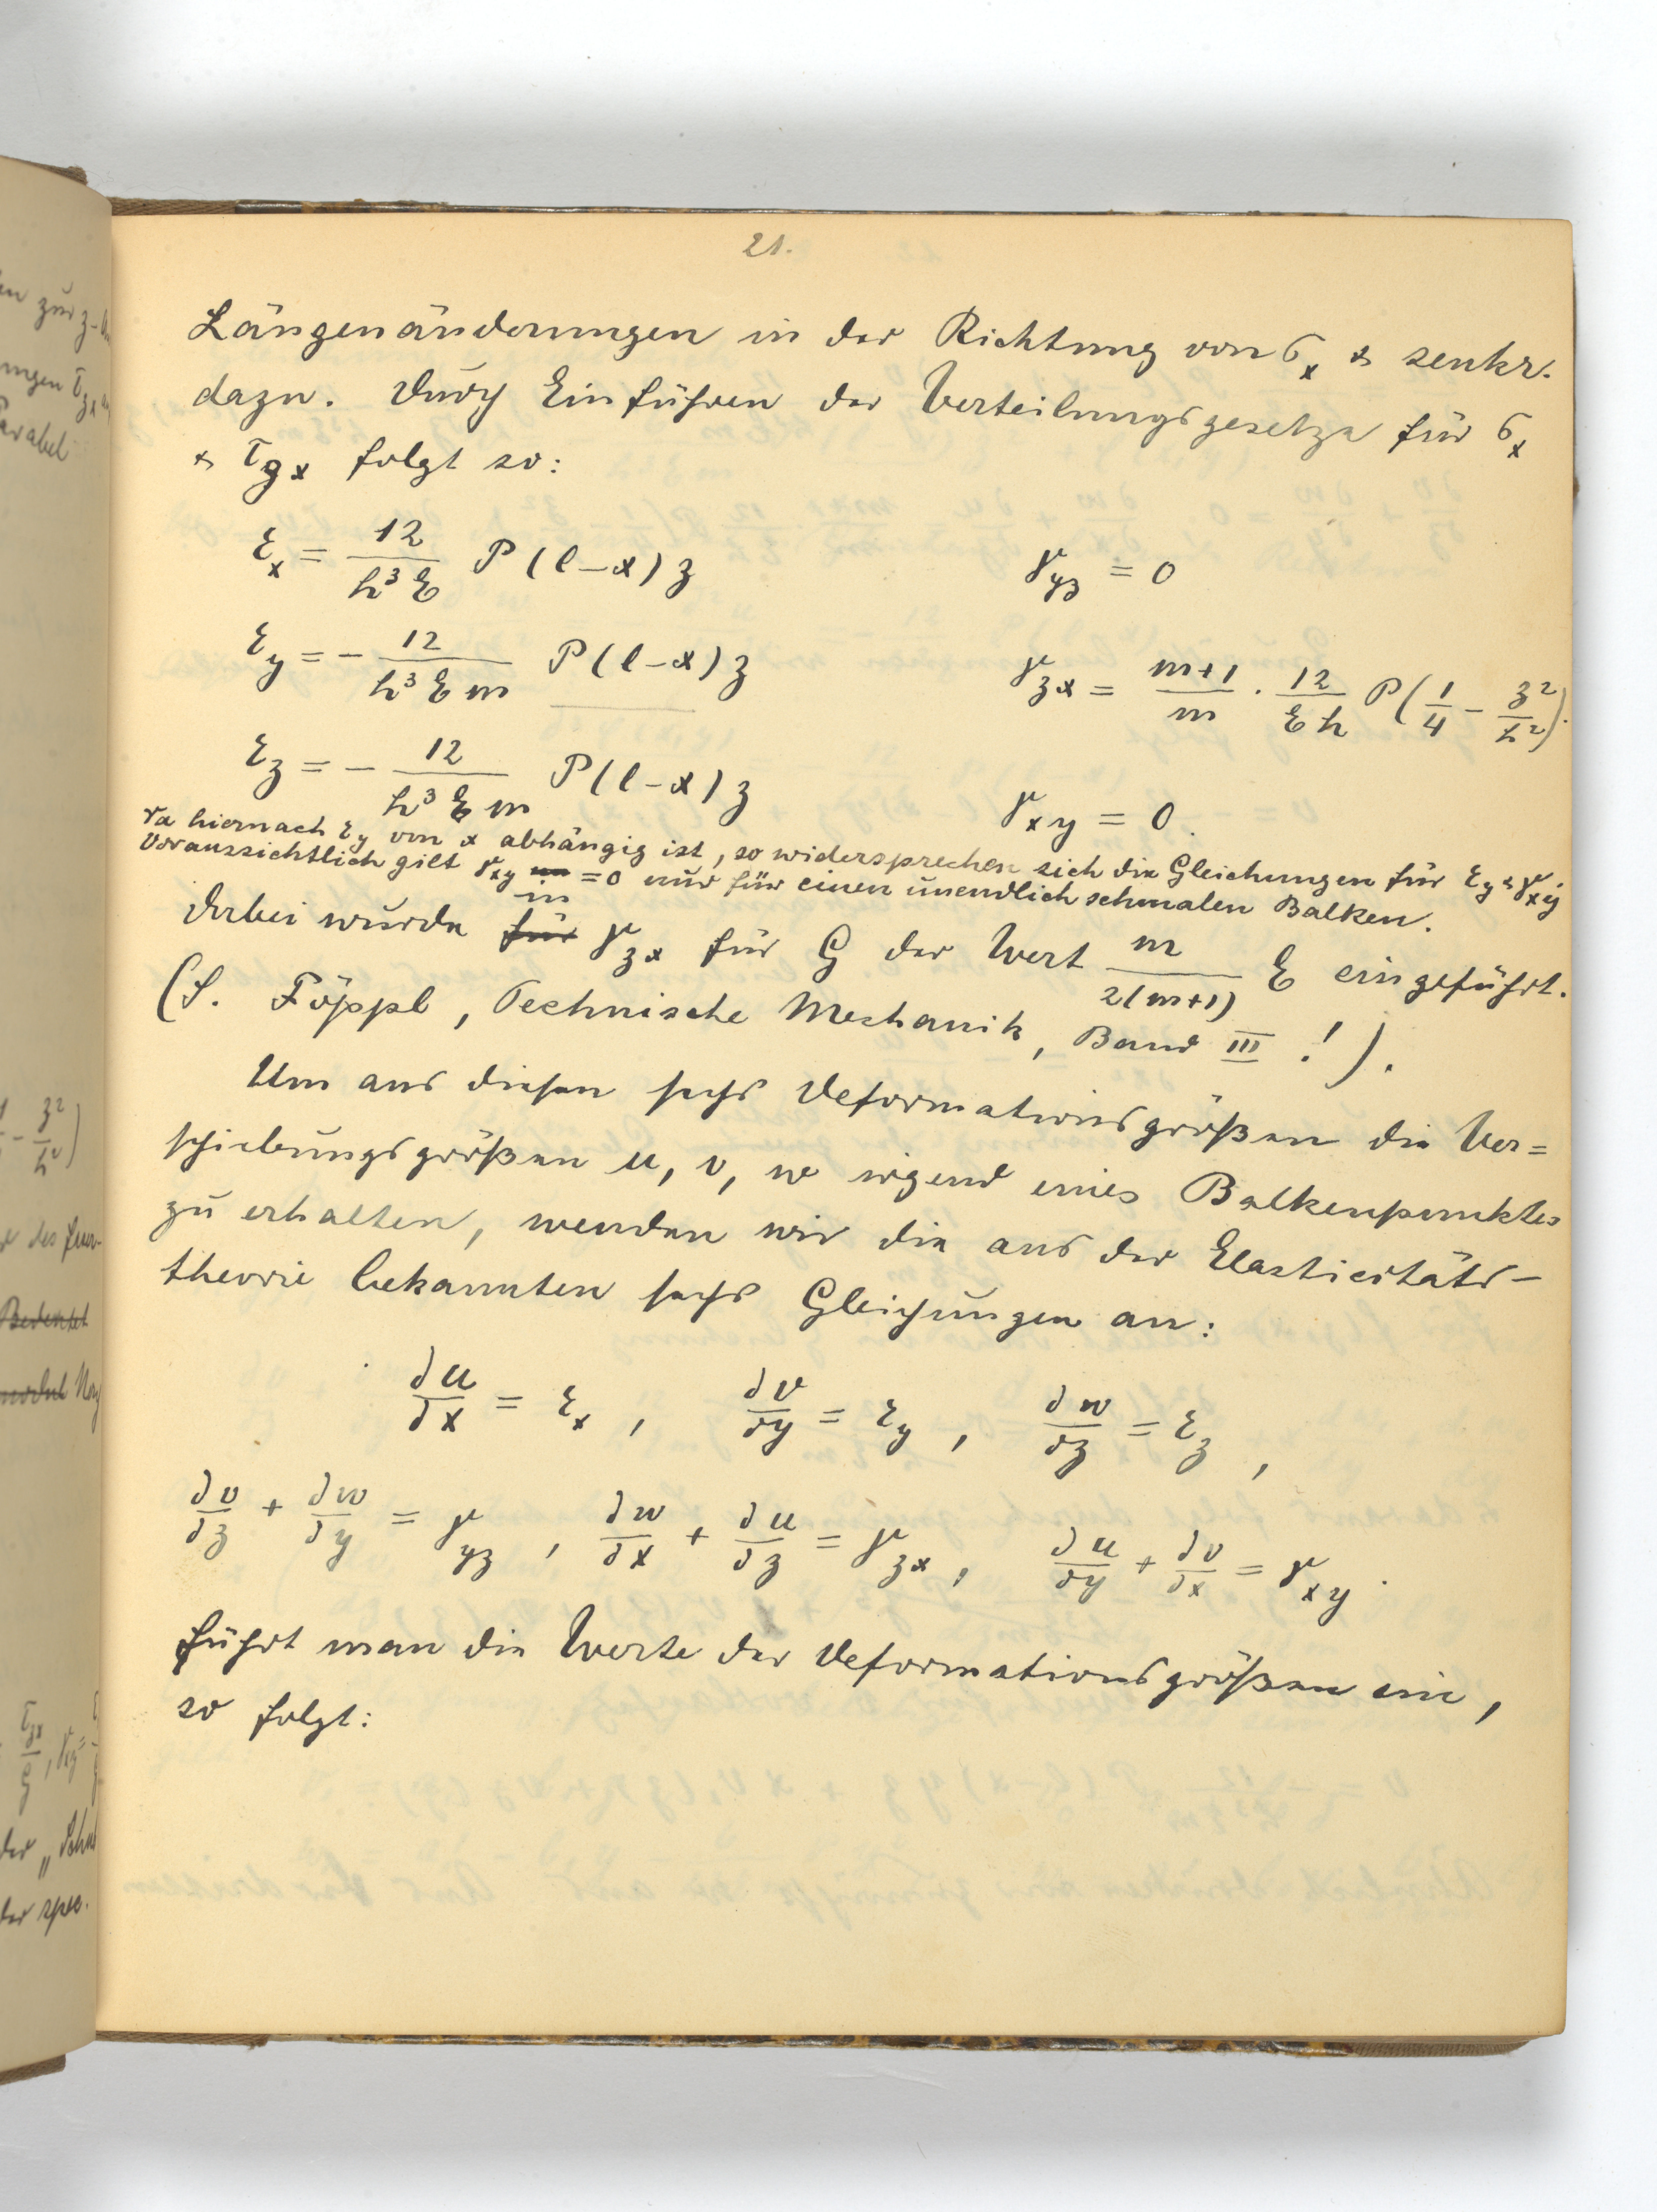 21.
Längenänderungen in der Richtung von σ_x & senkr.
dazu. Durch Einführen der Verteilungsgesetze für σ_x
& τ_zx folgt so:
ε_x = 12/(h³E) P(l-x)z    γ_yz = 0
ε_y = - 12/(h³Em) P(l-x)z    γ_zx = (m+1)/m · 12/(Eh) P(1/4 - z²/h²).
ε_z = - 12/(h³Em) P(l-x)z    γ_xy = 0.
Da hiernach ε_y von x abhängig ist, so widersprechen sich die Gleichungen für ε_y & γ_xy
Voraussichtlich gilt γ_xy = 0 nur für einen unendlich schmalen Balken.
Dabei wurde für in γ_zx für G der Wert m/(2(m+1)) E eingeführt.
(S. Föppl, Technische Mechanik, Band III !).
Um aus diesen sechs Deformationsgrößen die Ver=
schiebungsgrößen u, v, w irgend eines Balkenpunktes
zu erhalten, wenden wir die aus der Elasticitäts-
theorie bekannten sechs Gleichungen an:
∂u/∂x = ε_x, ∂v/∂y = ε_y, ∂w/∂z = ε_z,
∂v/∂z + ∂w/∂y = γ_yz, ∂w/∂x + ∂u/∂z = γ_zx, ∂u/∂y + ∂v/∂x = γ_xy.
Führt man die Werte der Deformationsgrößen ein,
so folgt: